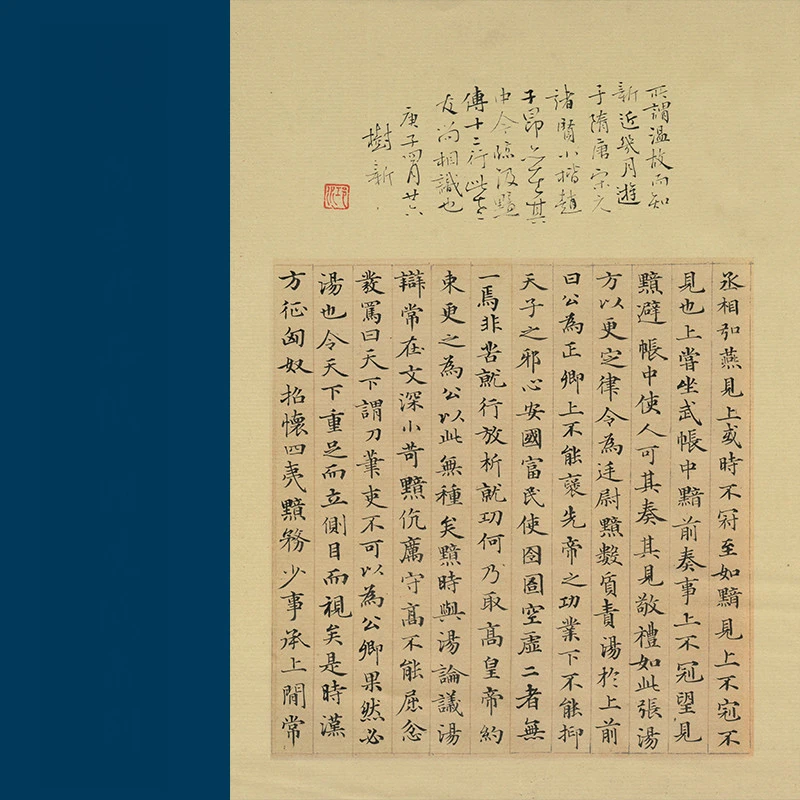 所謂溫故而知
新近幾月遊
于隋唐宋元
諸賢小楷趙
子昂亦在其
中今臨汲黯
傳十二行此
友尚相識也
庚子四月廿六
樹新
丞相弘燕見上或時不冠至如黯見上不冠不
見也上嘗坐武帳中黯前奏事上不冠望見
黯避帳中使人可其奏其見敬禮如此張湯
方以更定律令為廷尉黯數質責湯於上前
曰公為正卿上不能襃先帝之功業下不能抑
天子之邪心安國富民使囹圄空虛二者無
一焉非苦就行放析就功何乃取高皇帝約
束更之為公以此無種矣黯時與湯論議湯
辯常在文深小苛黯伉厲守高不能屈忿
發罵曰天下謂刀筆吏不可以為公卿果然必
湯也令天下重足而立側目而視矣是時漢
方征匈奴招懷四夷黯務少事承上閒常